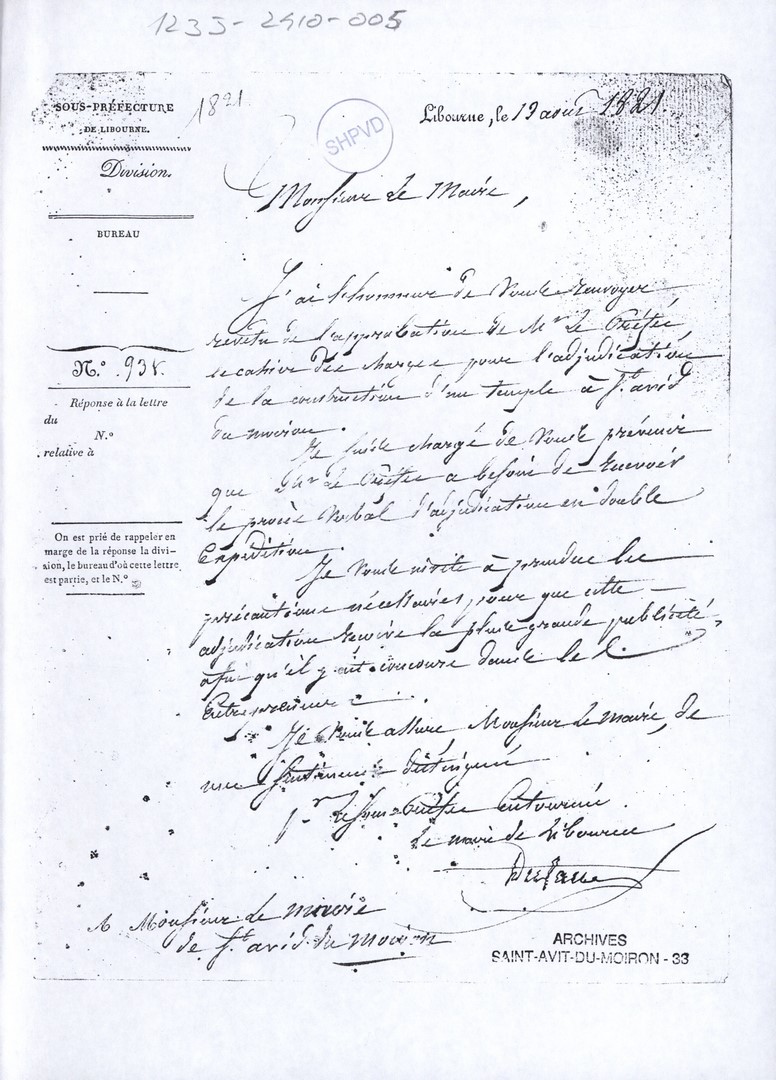 1235-2410-005
SOUS-PRÉFECTURE
DE LIBOURNE.
1821.
SHPVD
Libourne, le 19 août 1821.
Division.
Monsieur le Maire,
BUREAU
J'ai l'honneur de vous renvoyer
revêtu de l'approbation de Mr. le Préfet,
le cahier des charges pour l'adjudication
de la construction d'un temple à St. avid
du moiron.
N.º 938.
Réponse à la lettre
du
N.º
relative à
Je suis chargé de vous prévenir
que Mr. le Préfet a besoin de recevoir
le procès verbal d'adjudication en double
Expédition.
On est prié de rappeler en
marge de la réponse la divi-
sion, le bureau d'où cette lettre
est partie, et le N.º
Je vous invite à prendre les
précautions nécessaires pour que cette
adjudication reçoive la plus grande publicité
afin qu'il y ait concours dans les
Entrepreneurs.
Je vous assure, Monsieur le maire, de
mes sentimens distingués
pr. le sous-Préfet en tournée.
Le maire de Libourne
A Monsieur le maire
de St. avid du moiron
ARCHIVES
SAINT-AVIT-DU-MOIRON - 33